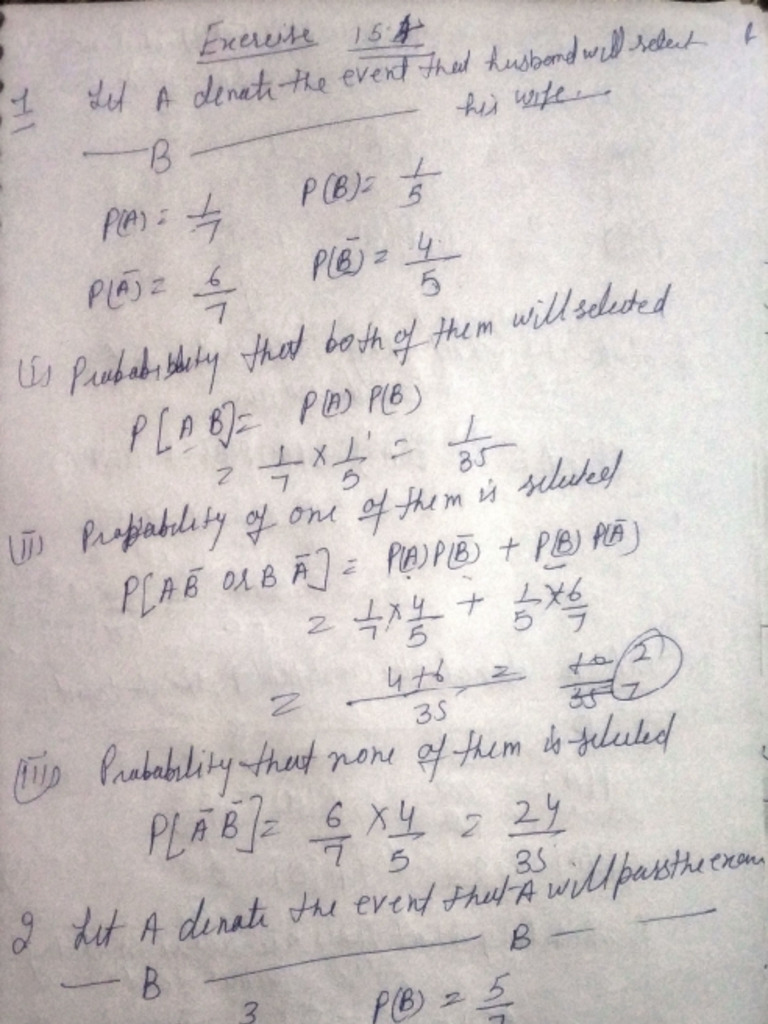 Exercise 15.A
1 Let A denate the event that husband will select
his wife.
— B —
P(A) = 1/7 P(B) = 1/5
P(Ā) = 6/7 P(B̄) = 4/5
(i) Probability that both of them will selected
P[A B] = P(A) P(B)
= 1/7 × 1/5 = 1/35
(ii) Probability of one of them is selected
P[A B̄ or B Ā] = P(A) P(B̄) + P(B) P(Ā)
= 1/7 × 4/5 + 1/5 × 6/7
= 4+6/35 = 10/35 2/7
(iii) Probability that none of them is selected
P[Ā B̄] = 6/7 × 4/5 = 24/35
2 Let A denate the event that A will pass the exam
— B — B — —
3 P(B) = 5/7